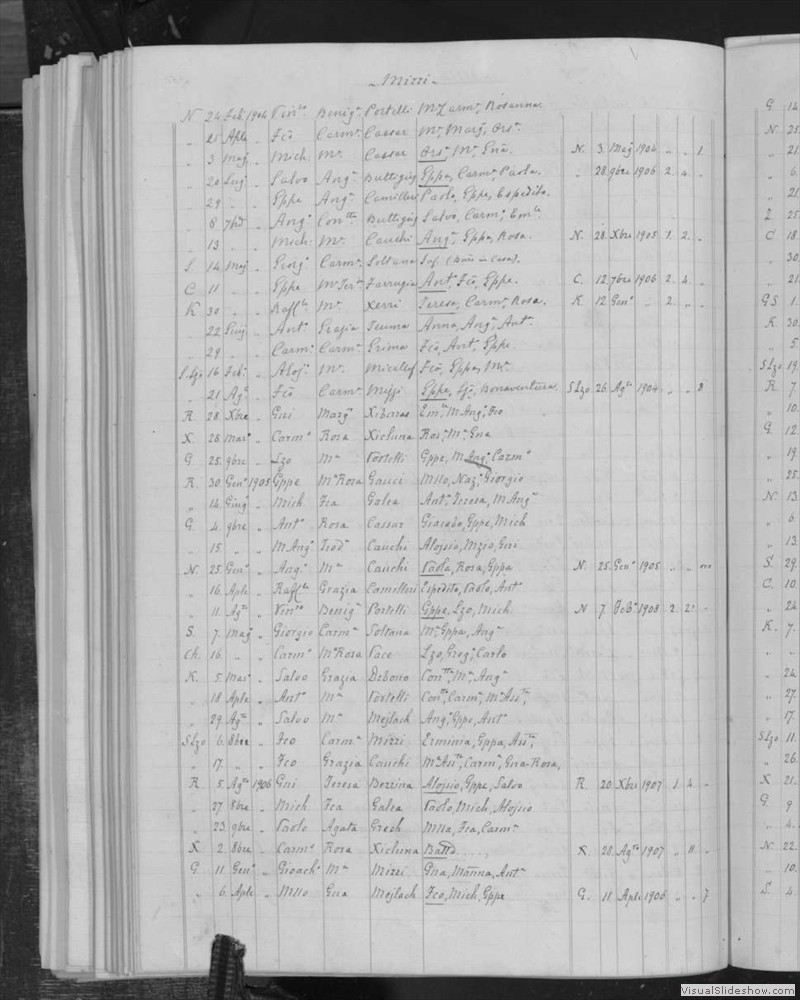 Mizzi
N 24 Feb. 1904 Vin.zo Benig.a Portelli M.a Carm.a Rosanna
" 25 Aple " Fco Carm.a Cassar M.a, Marg.a, Ors.a
" 3 Mag " Mich M.a Cassar Ors.a, M.a, Gna. N. 3. Mag 1904 " " 1
" 20 Lug " Salvo Ang.a Buttigieg Gppa, Carm.a Paola. " 28. 9bre 1906 2. 4. "
" 29 " " Gppe Ang.a Camilleri Paolo, Gppe, Espedito.
" 8 7bre " Ang.o Con.tta Buttigieg Salvo, Carm.o Em.le
" 13 " " Mich. M.a Cauchi Ang.a, Gppa, Rosa. N. 28. Xbre 1905 1. 2. "
S. 14 Mag " Giorg.o Carm.a Soltana
C 11 " " Gppe M.a Ter.a Farrugia Ant.o, Fco, Gppe. C. 12. 7bre 1906 2. 4. "
K 30 " " Raff.le M.a Xerri Teresa, Carm.a Rosa. K. 12 Gen.o " 2. " "
" 22 Giug " Ant.o Grazia Teuma Anna, Ang.a, Ant.a
" 29 " " Carm.o Carm.a Grima Fco, Ant.o, Gppe
S.Lzo 16 Feb. " Aloj.o M.a Micallef Fco, Gppe, M.a
" 21 Ag.to " Fco Carm.a Mizzi Gppe, Bonaventura. SLzo 26. Ag.to 1904 " " 8
R. 28. Xbre " Gni Marg.a Xiberras Em.le, M Ang.o, Fco
X 28 Mar.o " Carm.o Rosa Xicluna Ros.a, M.a Gna
G 25. 9bre " Lzo M.a Portelli Gppe, M Ang.o, Carm.o
R. 30 Gen.o 1905 Gppe M.a Rosa Gauci Mllo, Naz.o, Giorgio
" 14. Giug.o " Mich Fca Galea Ant.a, Teresa, M Ang.a
G. 4. 9bre " Ant.o Rosa Cassar Giacobo, Gppe, Mich
" 15. " " M Ang.o Teod.a Cauchi Alojsio, Mzio, Gni
N. 25 Gen.o " Ang.o M.a Cauchi Paola, Rosa, Gppa N. 25. Gen.o 1905 " "
" 16. Aple " Raff.le Grazia Camilleri Espedito, Paolo, Ant.o
" 11. Ag.to " Vin.zo Benig.a Portelli Gppe, Lzo, Mich N 7. Feb.o 1908 2. 2. "
S. 7. Mag " Giorgio Carm.a Soltana M.a, Gppa, Ang.a
Ch. 16. " " Carm.o M.a Rosa Pace Lzo, Greg.o, Carlo
K. 5 Mar.o " Salvo Grazia Debono Con.tta, M.a, Ang.a
" 18 Aple " Ant.o M.a Portelli Con.tta, Carm.a, M.a Ass.ta
" 29. Ag.to " Salvo M.a Mejlach Ang.o, Gppe, Ant.o
SLzo 6. 8bre " Fco Carm.a Mizzi Erminia, Gppa, Ass.ta
" 17. " " Fco Grazia Cauchi M.a Ass.ta, Carm.a, Gna-Rosa,
R 5. Ag.to 1906 Gni Teresa Bezzina Alojsio, Gppe, Salvo R. 20. Xbre 1907 1. 4. "
" 27. 8bre " Mich Fca Galea Paolo, Mich, Alojsio
" 23. 9bre " Paolo Agata Grech Mlla, Fca, Carm.a
X 2. 8bre " Carm.o Rosa Xicluna Batt.a ....., X. 28. Ag.to 1907 " 11. "
G. 11. Gen.o " Gioach.o M.a Mizzi Gna, Marina, Ant.a
" 6. Aple " Mllo Gna Mejlach Fco, Mich, Gppe G. 11. Aple 1906 " " 7
G 14
N 25
" 21
" 6
" 21
Z 25
C 18
" 30
" 21
GS 1.
K. 30
" 5.
SLzo 19.
R 7.
" 10.
G. 12.
" 19.
" 25.
N. 13
" 6
" 13.
S. 29.
C. 10.
" 24
K. 7.
" 24
" 27.
" 17.
SLzo 11.
" 26.
X 21.
G 9
" 4.
N. 22.
" 10.
S. 4
VisualSlideshow.com